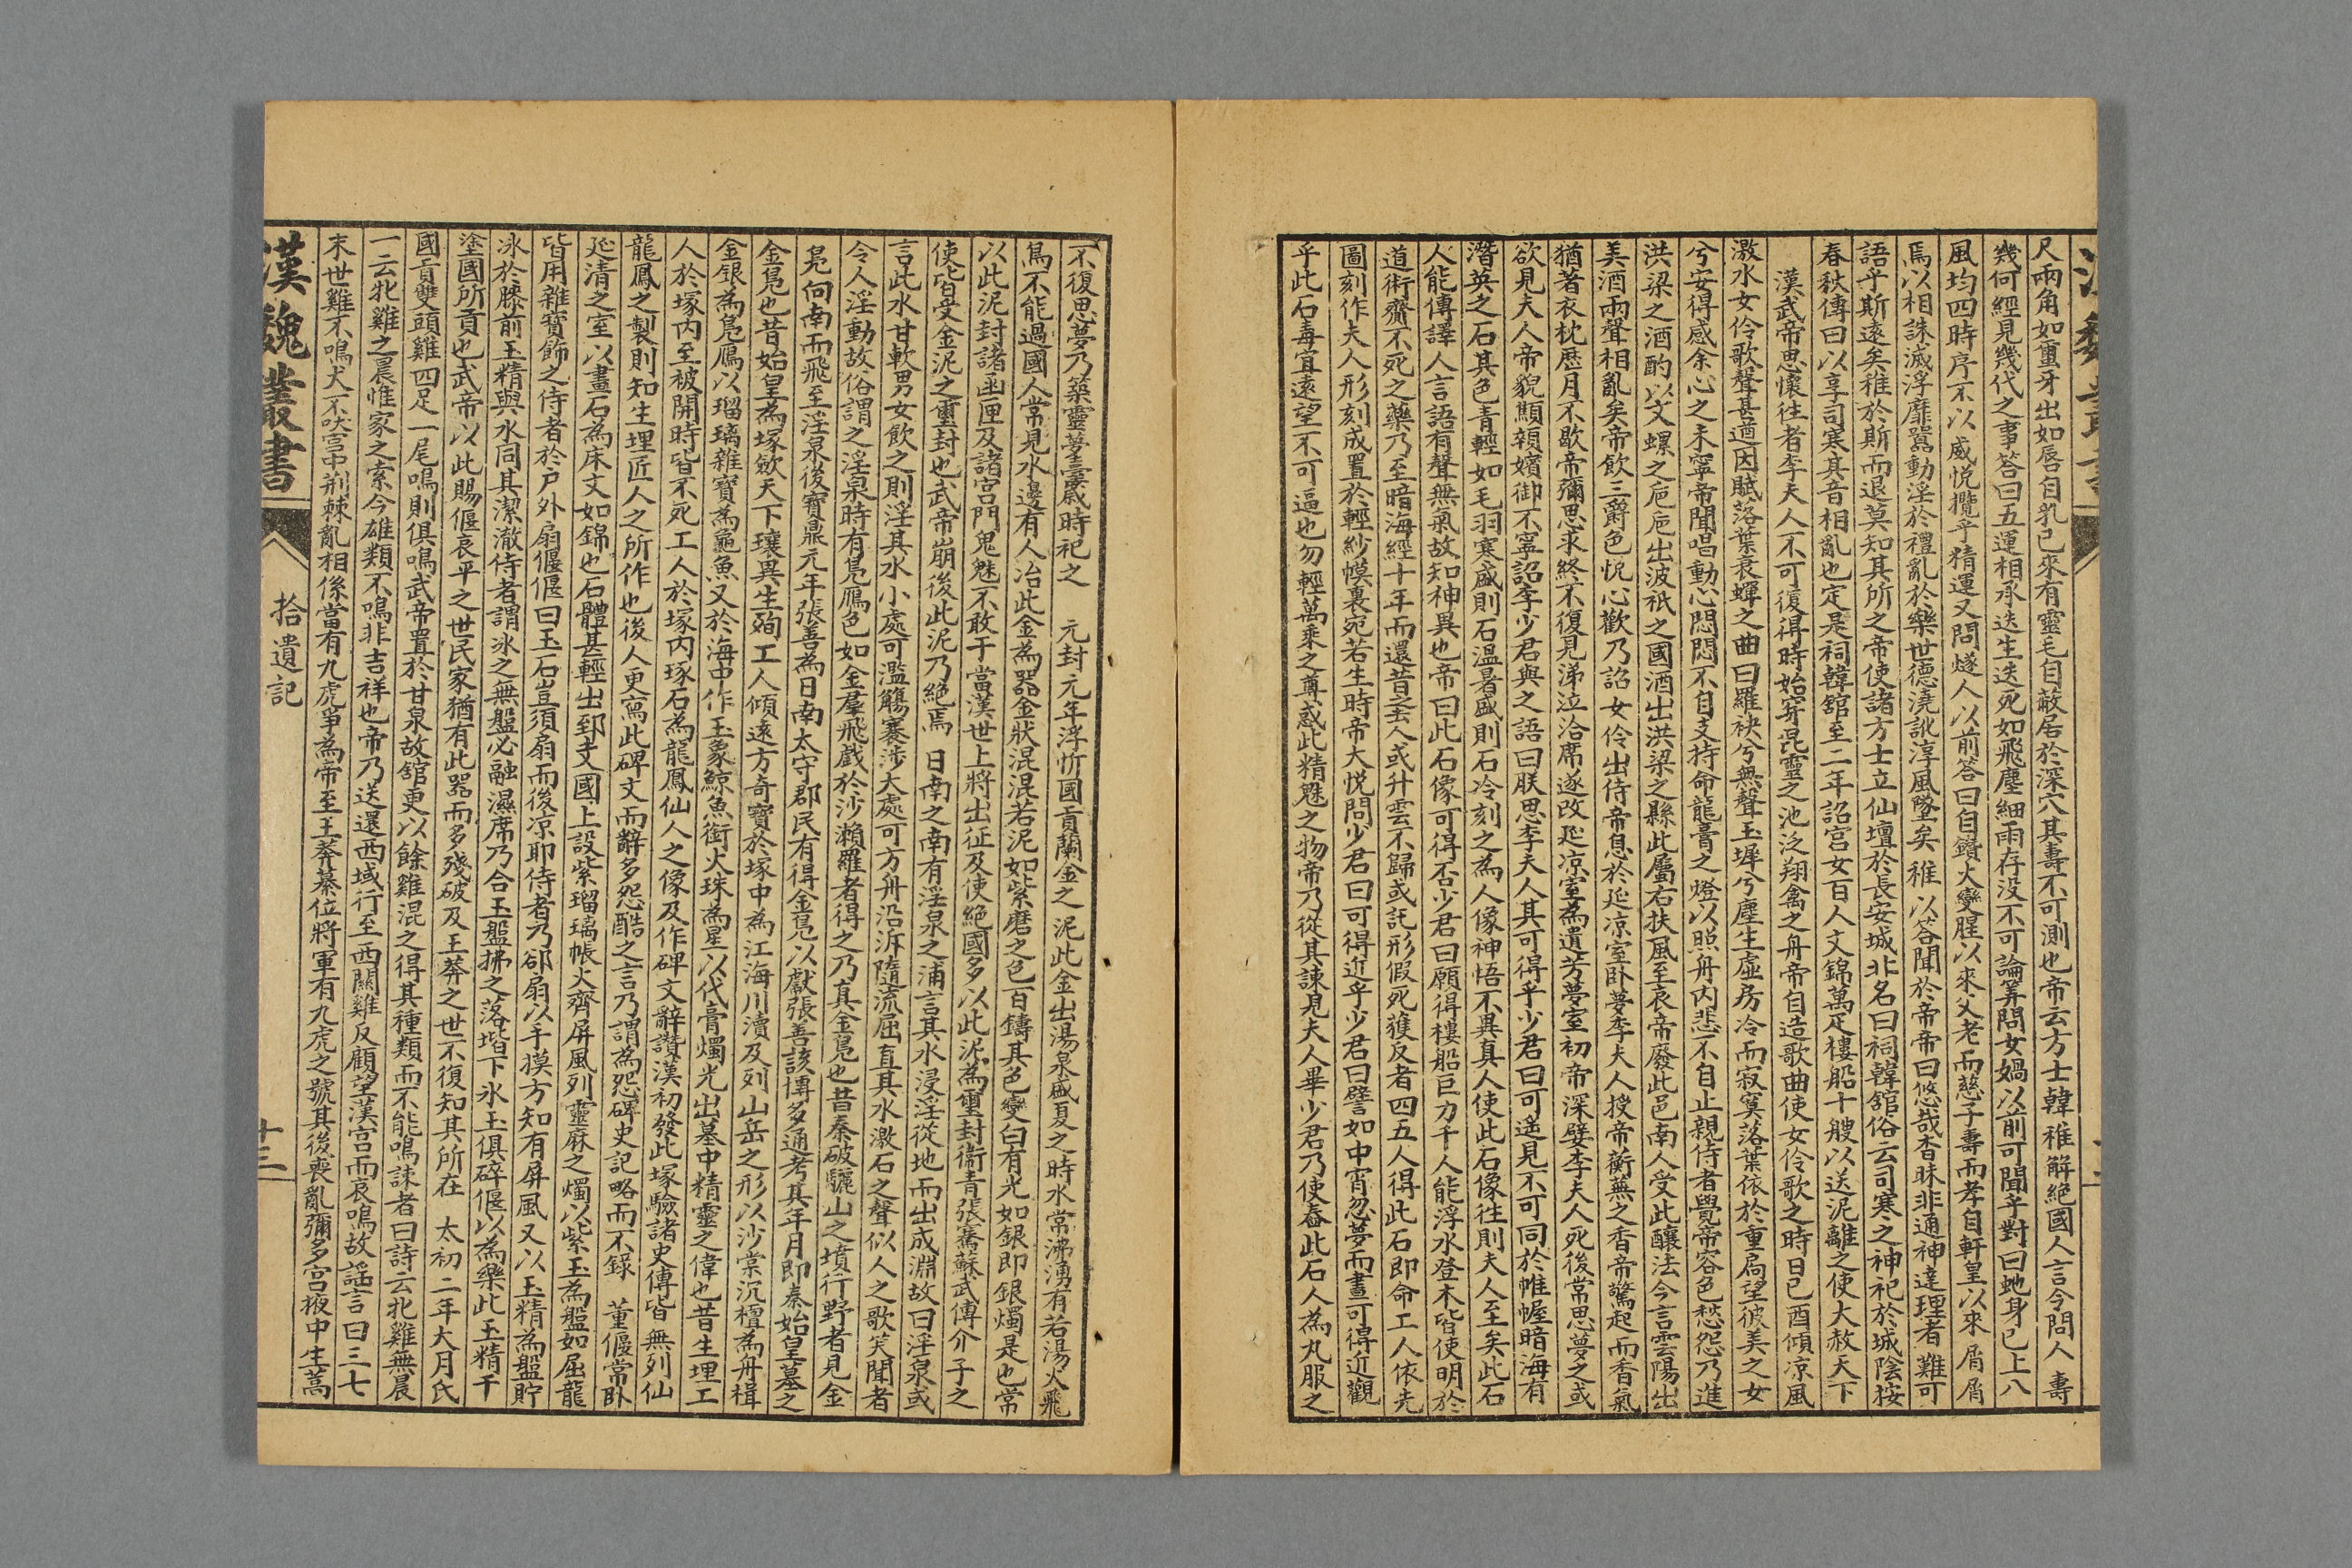 尺兩角如璽牙出如唇自乳已來有靈毛自蔽居於深穴其壽不可測也帝云方士韓稚解絕國人言令問人壽
幾何經見幾代之事答曰五運相承迭生迭死如飛塵細雨存没不可論筭問女媧以前可聞乎對曰虵身已上八
風均四時序不以威悅攬乎精運又問燧人以前答曰自鑽火變腥以來父老而慈子壽而孝自軒皇以來屑屑
焉以相誅滅浮靡嚻動淫於禮亂於樂世德澆訛淳風墜矣稚以答聞於帝帝曰悠哉杳昧非通神達理者難可
語乎斯遠矣稚於斯而退莫知其所之帝使諸方士立仙壇於長安城北名曰祠韓舘俗云司寒之神祀於城陰按
春秋傳曰以享司寒其音相亂也定是祠韓舘至二年詔宮女百人文錦萬疋樓船十艘以送泥離之使大赦天下
漢武帝思懷往者李夫人不可復得時始穿昆靈之池泛翔禽之舟帝自造歌曲使女伶歌之時日已西傾凉風
激水女伶歌聲甚遒因賦落葉哀蟬之曲曰羅袂兮無聲玉墀兮塵生虛房冷而寂寞落葉依於重扃望彼美之女
兮安得感余心之未寧帝聞唱動心悶悶不自支持命龍膏之燈以照舟内悲不自止親侍者覺帝容色愁怨乃進
洪梁之酒酌以文螺之巵巵出波祇之國酒出洪梁之縣此屬右扶風至哀帝廢此邑南人受此釀法今言雲陽出
美酒兩聲相亂矣帝飲三爵色悅心歡乃詔女伶出侍帝息於延凉室卧夢李夫人授帝蘅蕪之香帝驚起而香氣
猶著衣枕歷月不歇帝彌思求終不復見涕泣洽席遂改延凉室為遺芳夢室初帝深嬖李夫人死後常思夢之或
欲見夫人帝貌顇嬪御不寧詔李少君與之語曰朕思李夫人其可得乎少君曰可遥見不可同於帷幄暗海有
潛英之石其色青輕如毛羽寒盛則石温暑盛則石冷刻之為人像神悟不異真人使此石像往則夫人至矣此石
人能傳譯人言語有聲無氣故知神異也帝曰此石像可得否少君曰願得樓船巨力千人能浮水登木皆使明於
道術齎不死之藥乃至暗海經十年而還昔之去人或升雲不歸或託形假死獲反者四五人得此石即命工人依先
圖刻作夫人形刻成置於輕紗幙裏宛若生時帝大悅問少君曰可得近乎少君曰譬如中宵忽夢而晝可得近觀
乎此石毒宜遠望不可逼也勿輕萬乘之尊惑此精魅之物帝乃從其諫見夫人畢少君乃使舂此石人為丸服之
不復思夢乃築靈夢臺歲時祀之 元封元年浮忻國貢蘭金之泥此金出湯泉盛夏之時水常沸湧有若湯火飛
鳥不能過國人常見水邊有人冶此金為器金狀混混若泥如紫磨之色百鑄其色變白有光如銀即銀燭是也常
以此泥封諸函匣及諸宮門鬼魅不敢干當漢世上將出征及使絕國多以此泥為璽封衞青張騫蘇武傅介子之
使皆受金泥之璽封也武帝崩後此泥乃絕焉 日南之南有淫泉之浦言其水浸淫從地而出成淵故曰淫泉或
言此水甘軟男女飲之則淫其水小處可濫觴褰涉大處可方舟沿泝隨流屈直其水激石之聲似人之歌笑聞者
令人淫動故俗謂之淫泉時有鳬鴈色如金羣飛戲於沙瀨羅者得之乃真金鳬也昔秦破驪山之墳行野者見金
鳬向南而飛至淫泉後寶鼎元年張善為日南太守郡民有得金鳬以獻張善該博多通考其年月即秦始皇墓之
金鳬也昔始皇為塚斂天下瓌異生殉工人傾遠方奇寶於塚中為江海川瀆及列山岳之形以沙棠沉檀為舟楫
金銀為鳬鴈以瑠璃雜寶為龜魚又於海中作玉象鯨魚銜火珠為星以代膏燭光出墓中精靈之偉也昔生埋工
人於塚内至被開時皆不死工人於塚内琢石為龍鳳仙人之像及作碑文辭讚漢初發此塚驗諸史傳皆無列仙
龍鳳之製則知生埋匠人之所作也後人更寫此碑文而辭多怨酷之言乃謂為怨碑史記略而不錄 董偃常卧
延清之室以畫石為床文如錦也石體甚輕出郅支國上設紫瑠璃帳火齊屏風列靈麻之燭以紫玉為盤如屈龍
皆用雜寶飾之侍者於户外扇偃偃曰玉石豈須扇而後凉耶侍者乃郤扇以手摸方知有屏風又以玉精為盤貯
氷於膝前玉精與水同其潔澈侍者謂氷之無盤必融濕席乃合玉盤拂之落堦下氷玉俱碎偃以為樂此玉精千
塗國所貢也武帝以此賜偃哀平之世民家猶有此器而多殘破及王莽之世不復知其所在 太初二年大月氏
國貢雙頭雞四足一尾鳴則俱鳴武帝置於甘泉故舘更以餘雞混之得其種類而不能鳴諫者曰詩云牝雞無晨
一云牝雞之晨惟家之索今雄類不鳴非吉祥也帝乃送還西域行至西關雞反顧望漢宫而哀鳴故謡言曰三七
末世雞不鳴犬不吠宫中荆棘亂相係當有九虎爭為帝至王莽篡位將軍有九虎之號其後喪亂彌多宫掖中生蒿
漢魏叢書
拾遺記
十三